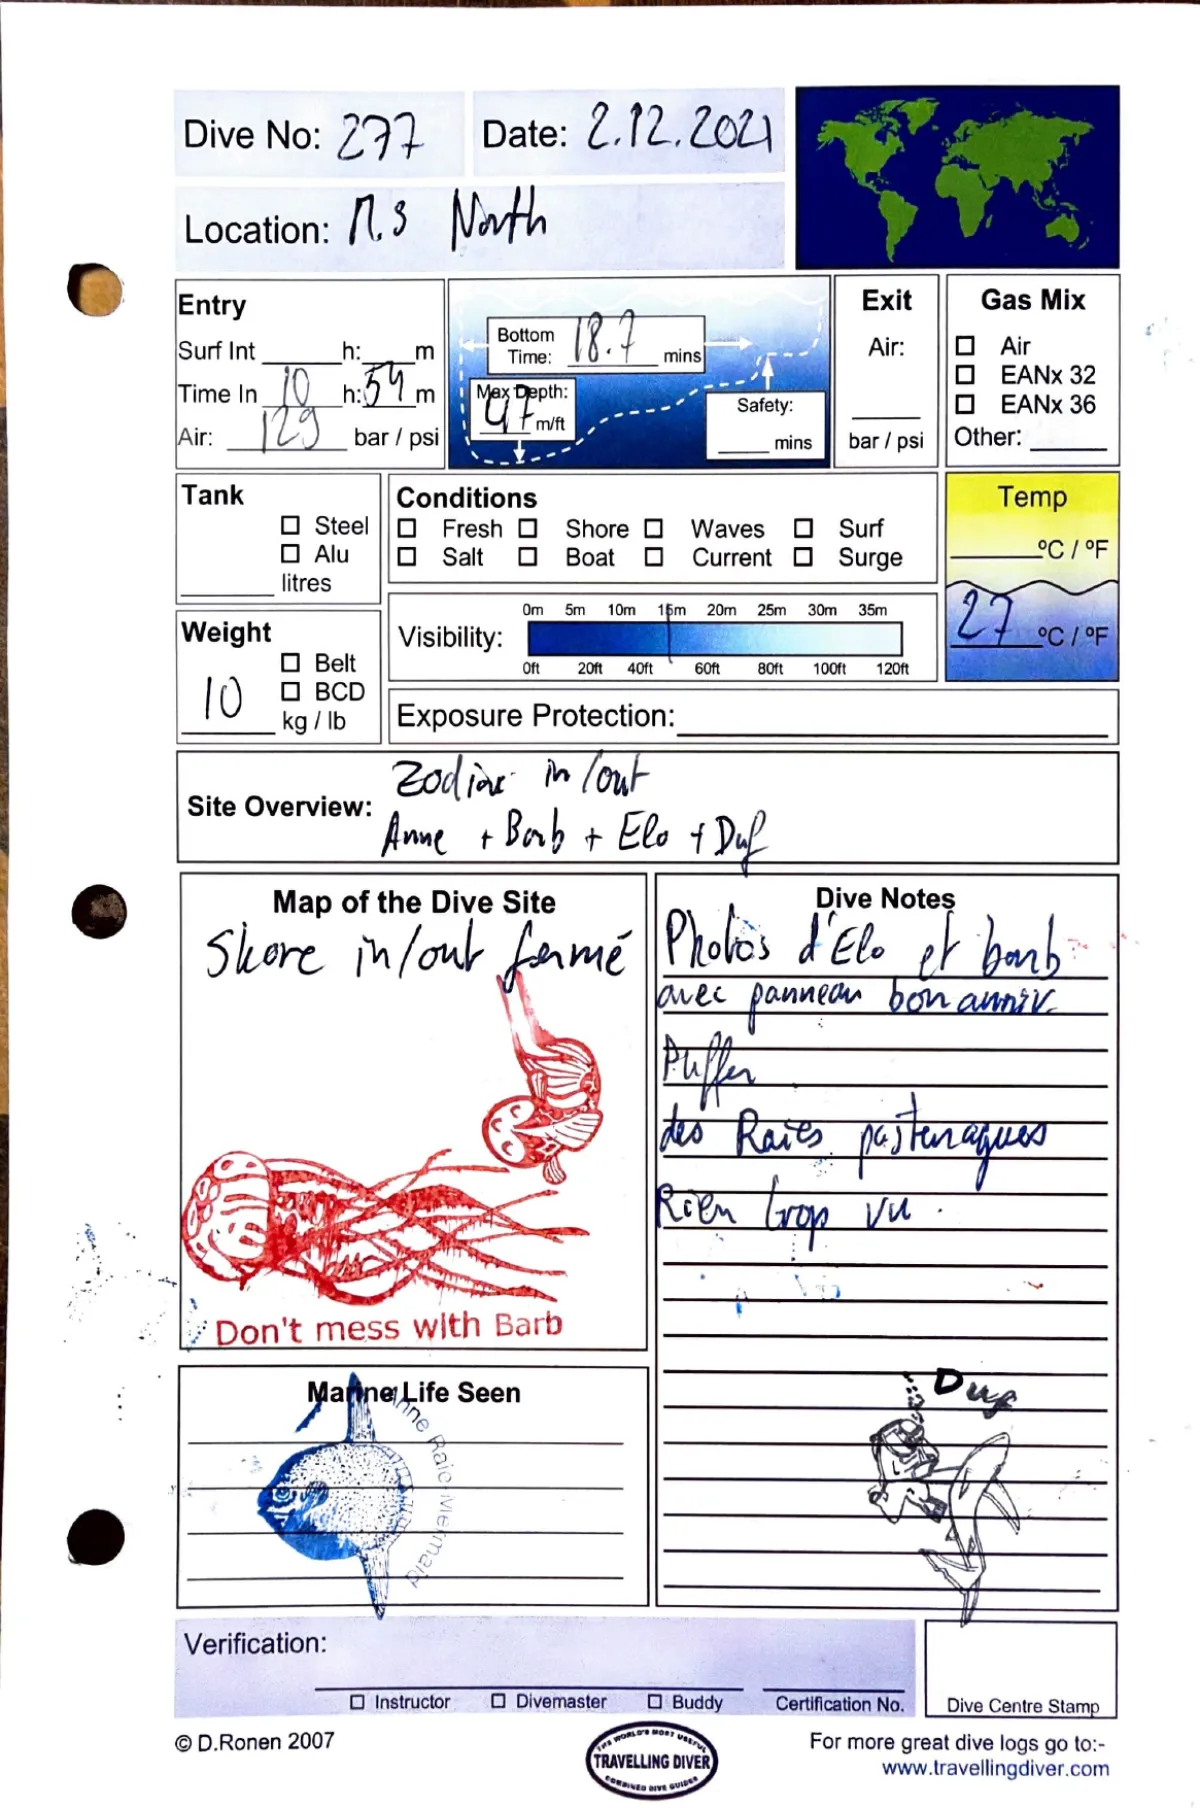 Dive No: 277 Date: 2.12.2021
Location: M.S North
Entry
Surf Int ____ h: ____ m
Time In 10 h: 54 m
Air: 129 bar / psi
Bottom Time: 18.7 mins
Max Depth: 47 m/ft
Safety: ____ mins
Exit
Air:
____
bar / psi
Gas Mix
☐ Air
☐ EANx 32
☐ EANx 36
Other: ____
Tank
☐ Steel
☐ Alu
____ litres
Conditions
☐ Fresh ☐ Shore ☐ Waves ☐ Surf
☐ Salt ☐ Boat ☐ Current ☐ Surge
Temp
____ ºC / ºF
27 ºC / ºF
Weight
☐ Belt
☐ BCD
10 kg / lb
0m 5m 10m 15m 20m 25m 30m 35m
Visibility:
0ft 20ft 40ft 60ft 80ft 100ft 120ft
Exposure Protection:
Site Overview: Zodiac in/out
Anne + Barb + Elo + Duf
Map of the Dive Site
Shore in/out fermé
Don't mess with Barb
Dive Notes
Photos d'Elo et barb
avec panneau bon anniv.
Puffer
des Raies pastenagues
Rien trop vu.
Marine Life Seen
Anne Raie Mermaid
Verification:
☐ Instructor ☐ Divemaster ☐ Buddy Certification No.
Dive Centre Stamp
© D.Ronen 2007
THE WORLD'S MOST USEFUL
TRAVELLING DIVER
COMBINED DIVE GUIDES
For more great dive logs go to:-
www.travellingdiver.com